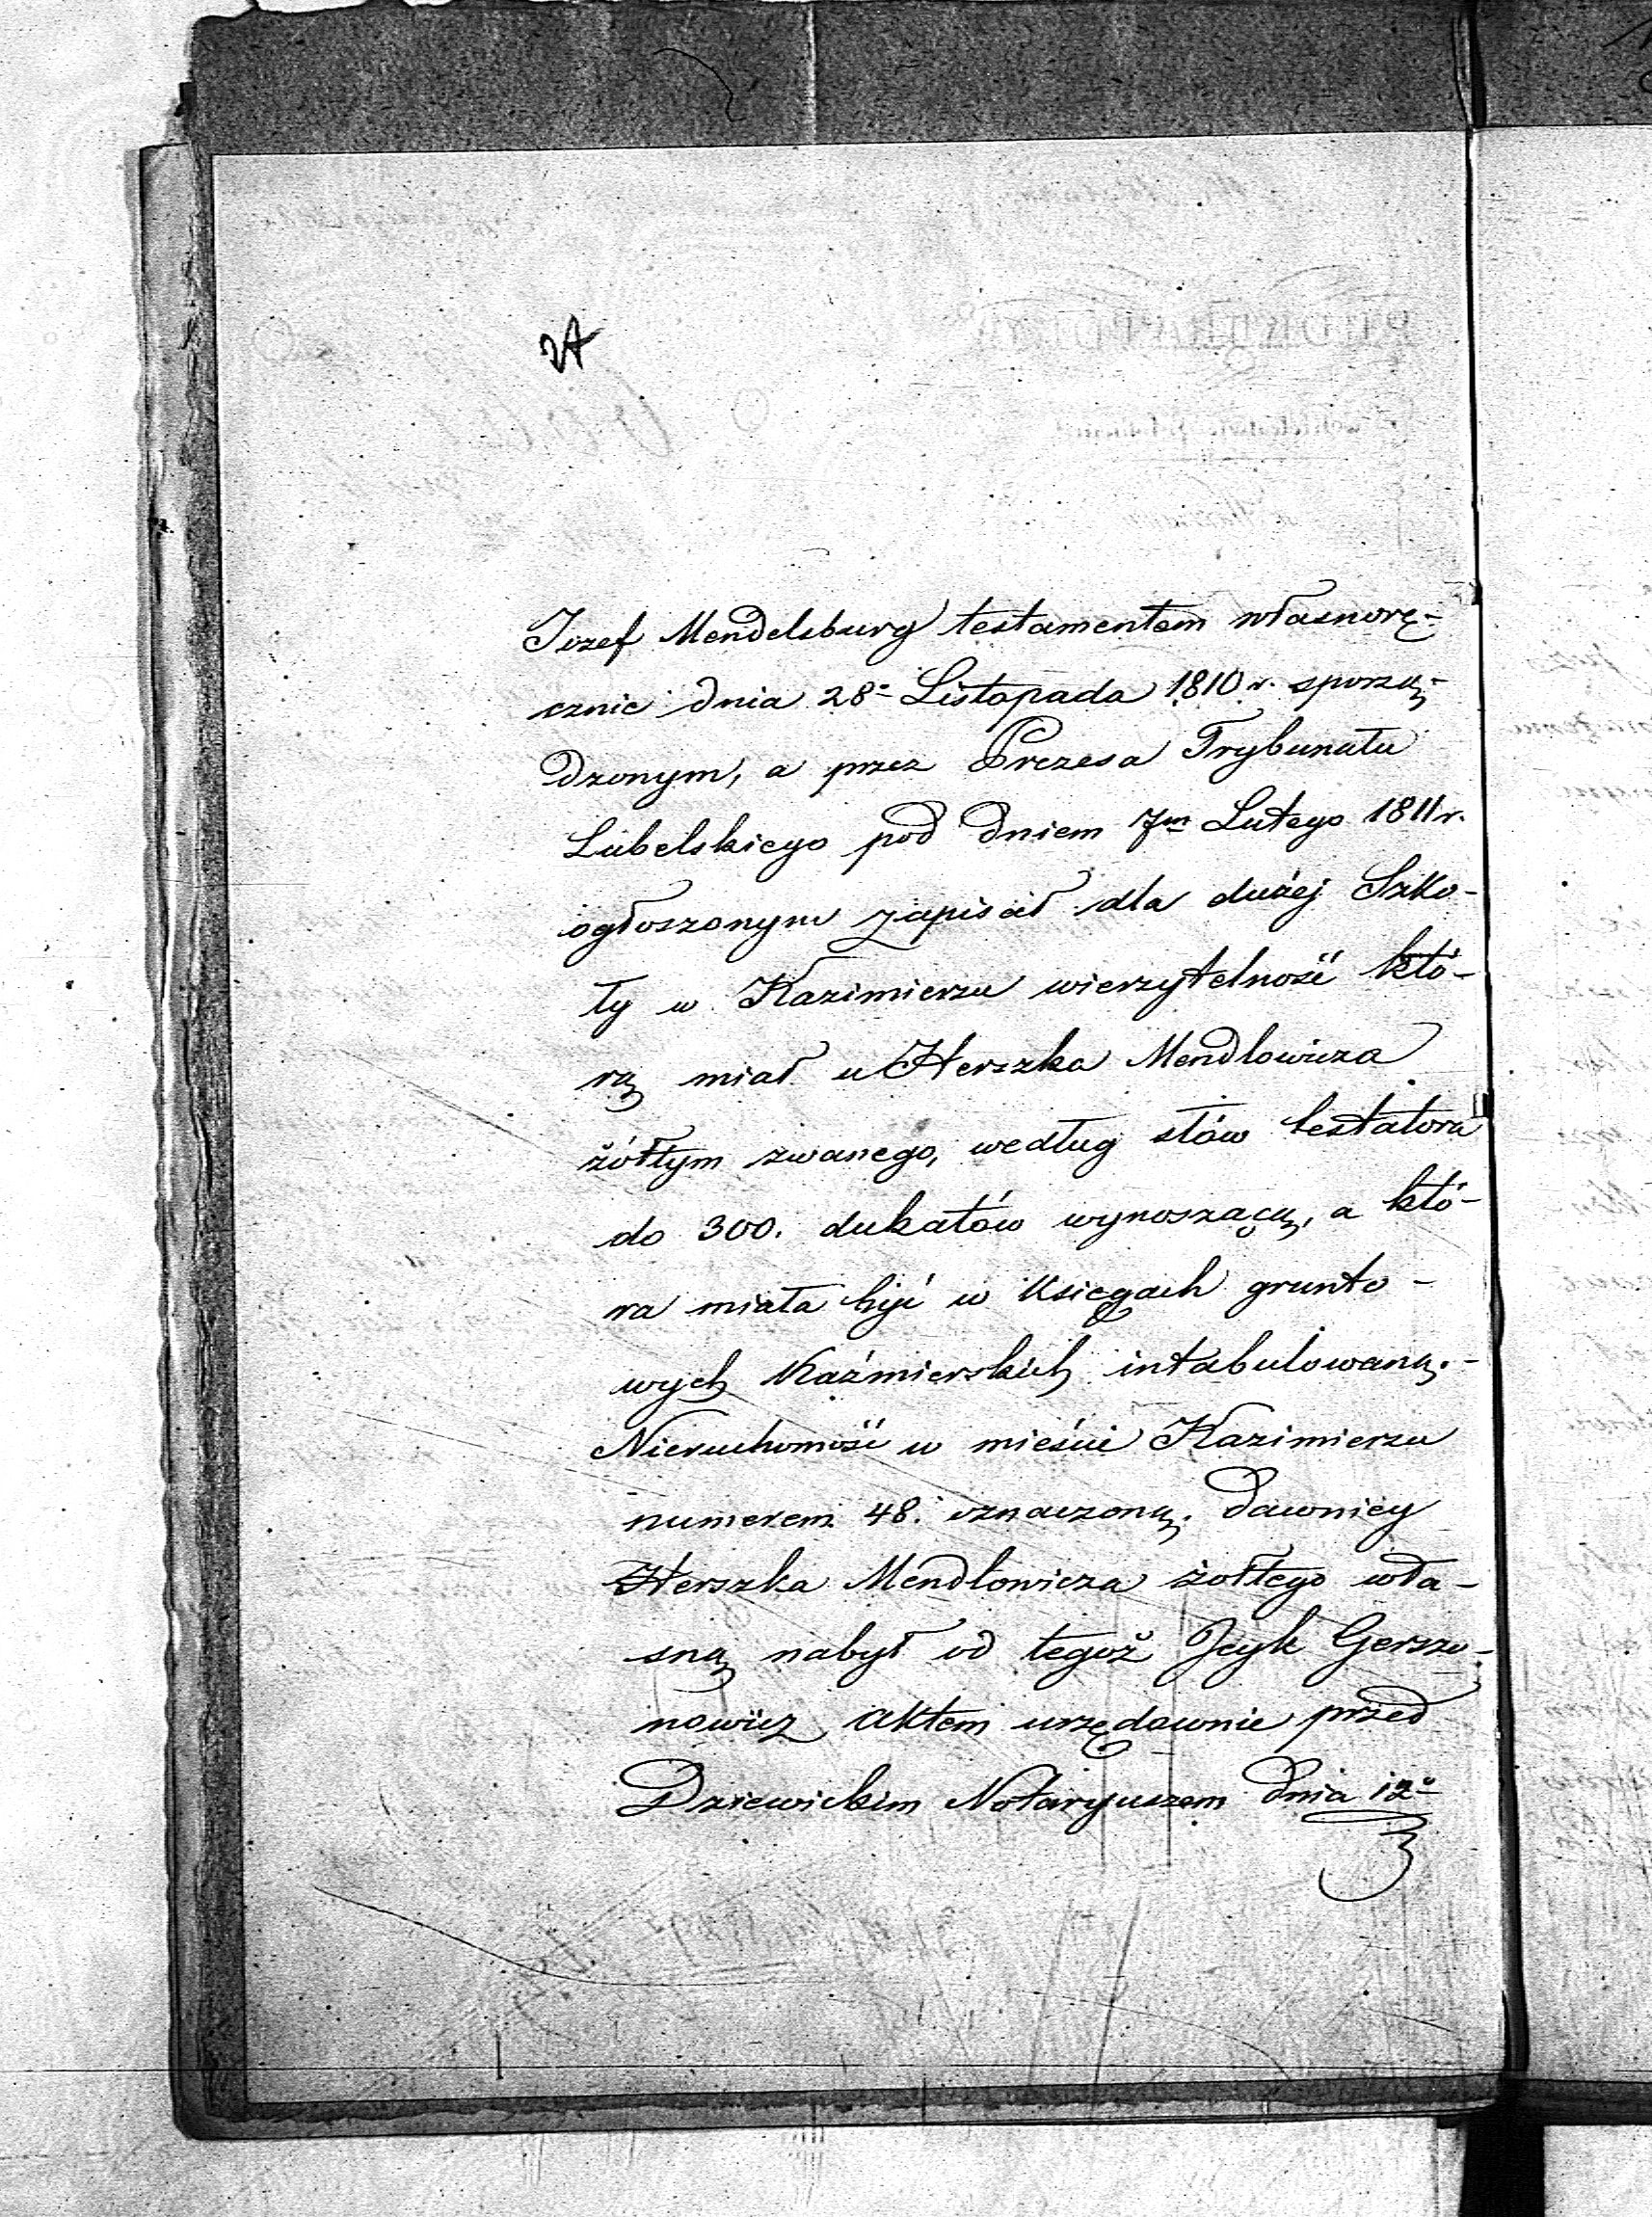 Jozef Mendelsburg testamentem własnorę-
cznie dnia 28º Listopada 1810 r. sporzą-
dzonym, a przez Prezesa Trybunału
Lubelskiego pod dniem 7m Lutego 1811 r.
ogłoszonym zapisał dla dużej Szko-
ły w Kazimierzu wierzytelność któ-
rą miał u Herszka Mendlowicza
żółtym zwanego, według słów testatora
do 300. dukatów wynoszącą, a któ-
ra miała być w Księgach grunto-
wych Kaźmierskich intabulowaną.-
Nieruchomość w mieście Kazimierzu
numerem 48. oznaczoną. dawniey
Herszka Mendlowicza żołtego wła-
sną nabył od tegoż Jcyk Gerszo-
nowicz aktem urzędownie przed
Dziewickim Notaryuszem dnia 12º